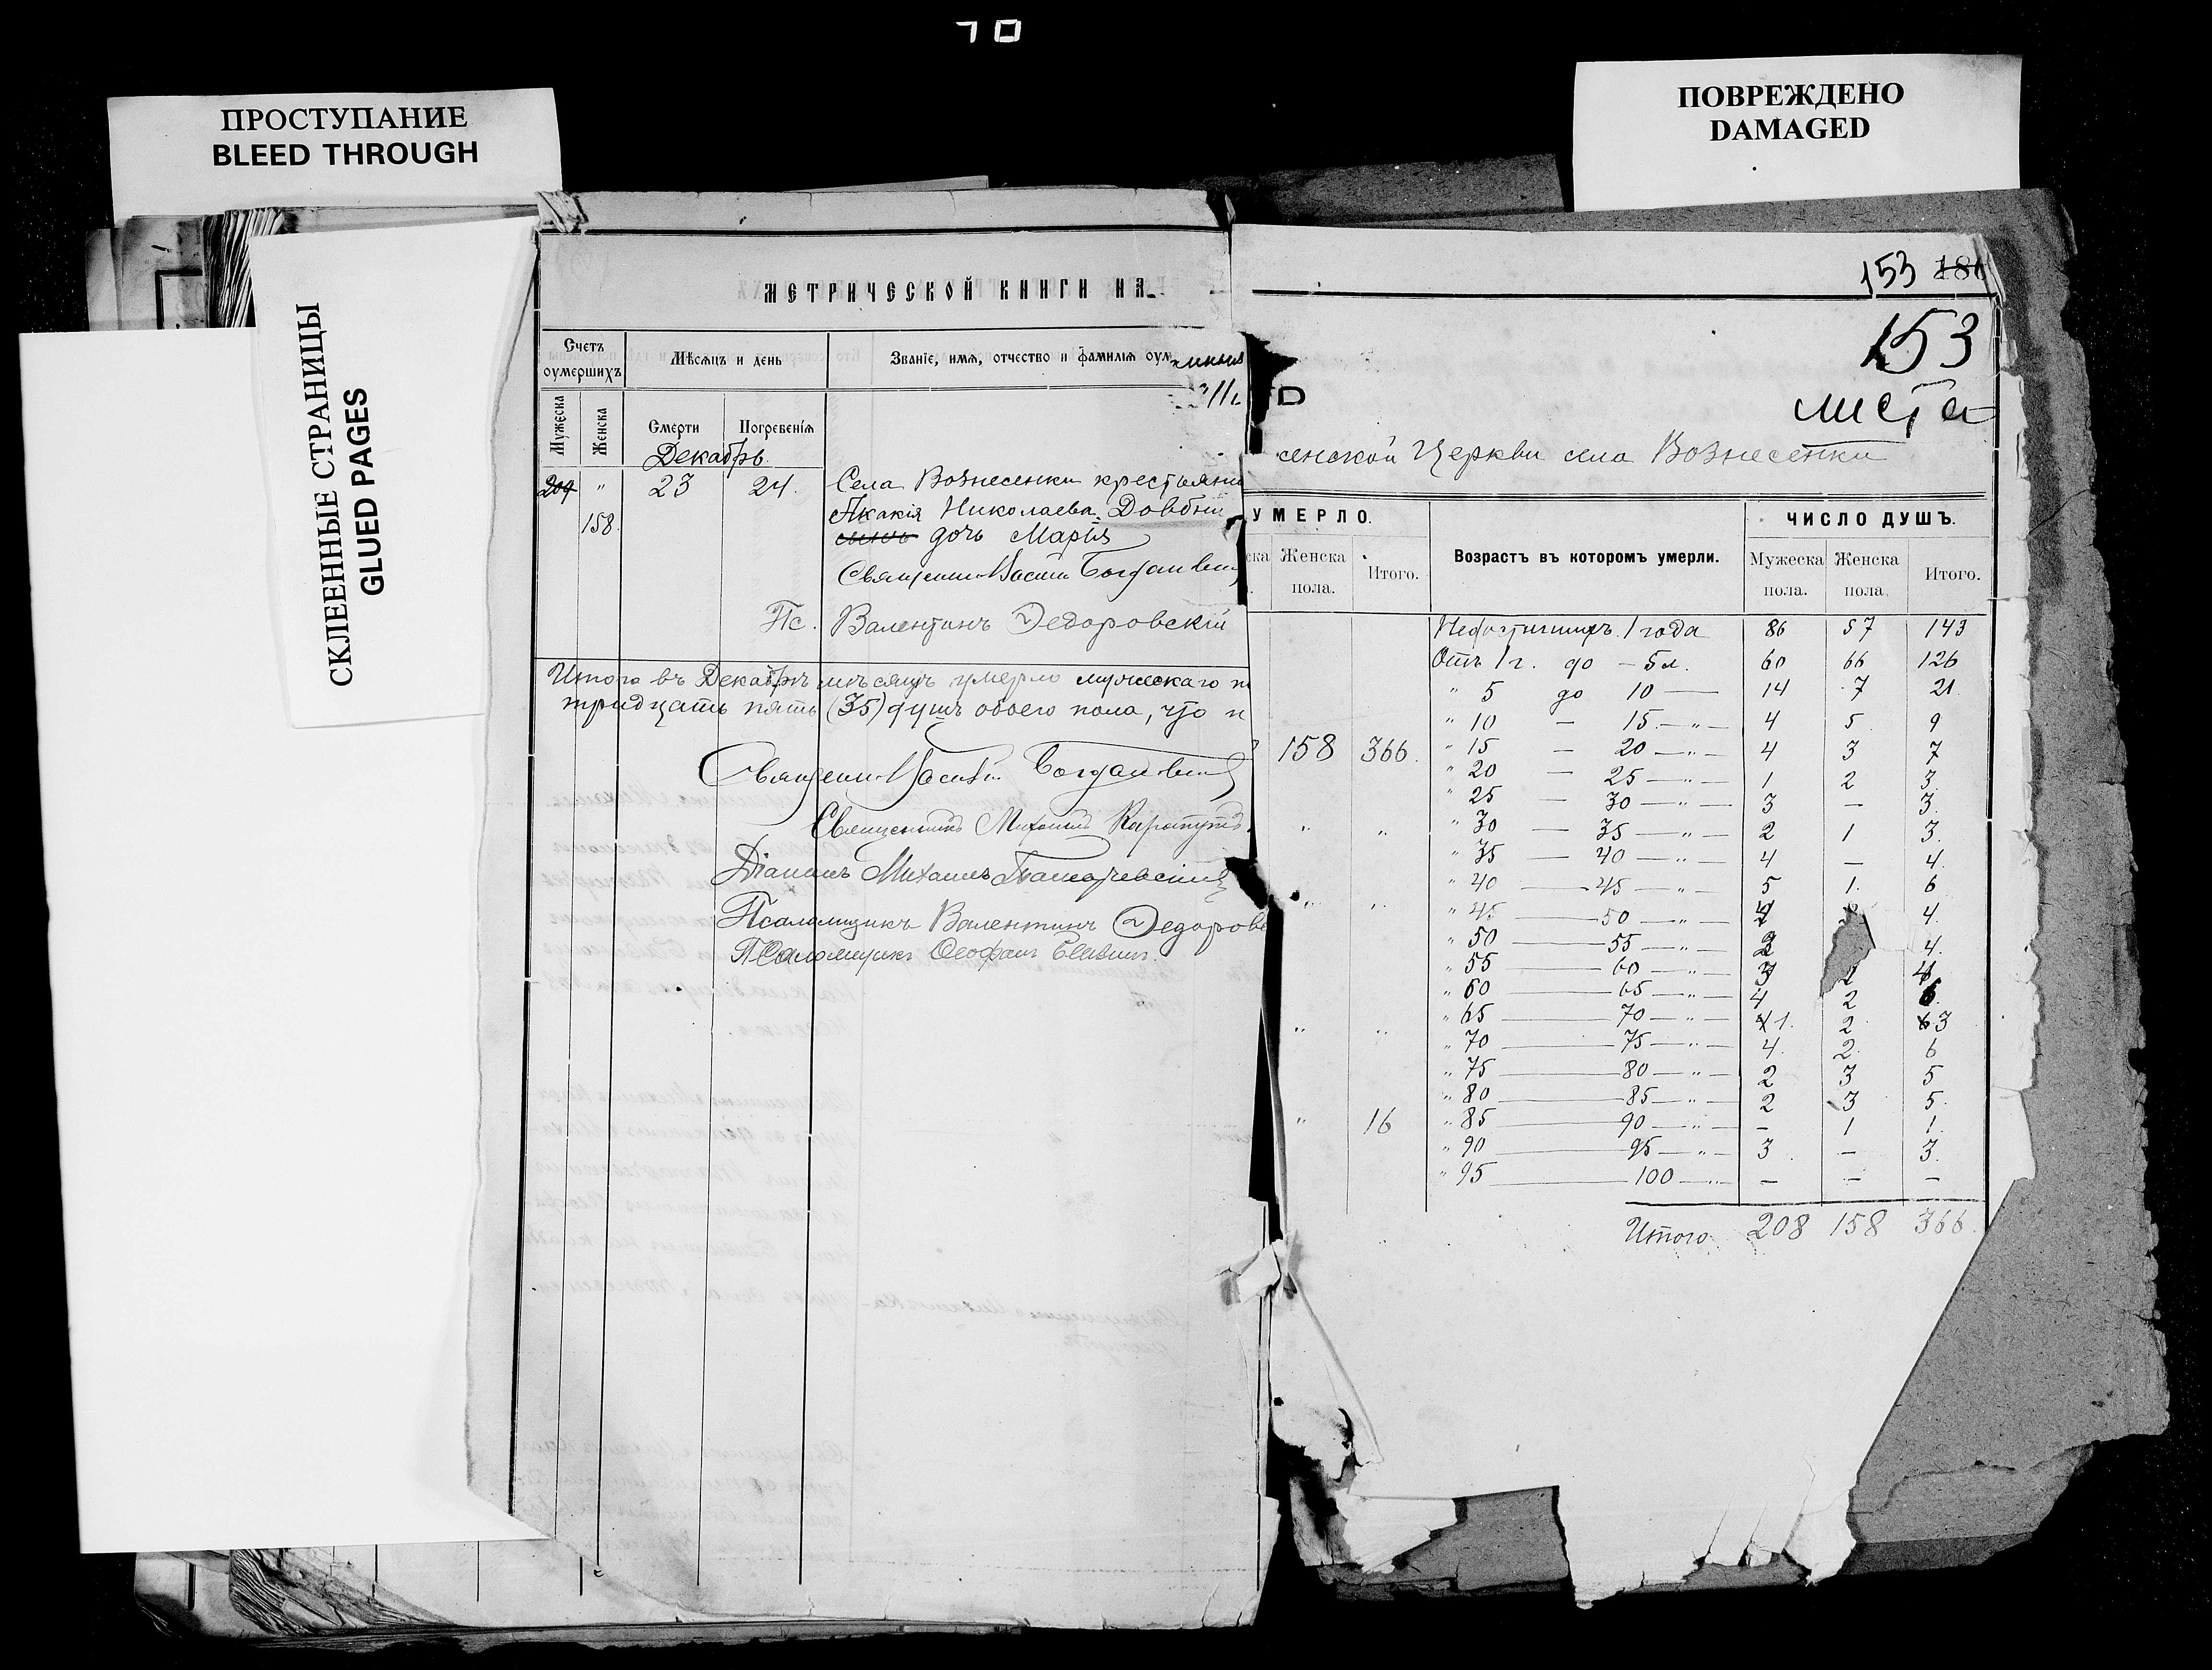 70
ПРОСТУПАНИЕ
BLEED THROUGH
ПОВРЕЖДЕНО
DAMAGED
СКЛЕЕННЫЕ СТРАНИЦЫ
GLUED PAGES
МЕТРИЧЕСКОЙ КНИГИ НА
Счетъ оумершихъ
Мѣсяцъ и день
Званіе, имя, отчество и фамилія оум
Мужеска
Женска
Смерти
Погребенія
Декабрь
209 " 23 24. Села Вознесенки крестьяни
158. Акакія Николаева Довбни
сынъ дочь Марія
Священ. Василій Богданович
Пс. Валентинъ Федоровскій
Итого въ Декабрѣ мѣсяцѣ умерло мужескаго п
тридцать пять (35) душъ обоего пола, что и
Священ. Василій Богданович
Священникъ Михаилъ
Діаконъ Михаилъ
Псаломщикъ Валентинъ Федоровс
Псаломщикъ Феофан
153 181
153
листа
сенской Церкви села Вознесенки
УМЕРЛО.
ска Женска пола. Итого.
Возрастъ въ которомъ умерли.
ЧИСЛО ДУШЪ.
Мужеска пола. Женска пола. Итого.
Недостигшихъ 1 года 86 57 143
Отъ 1 г. до — 5 л. 60 66 126
" 5 до 10 — 14 7 21
" 10 — 15 — " — 4 5 9
158 366. " 15 — 20 — " — 4 3 7
" 20 — 25 — " — 1 2 3.
" 25 — 30 — " — 3 — 3.
" " " 30 — 35 — " — 2 1 3.
" 35 — 40 — " — 4 — 4.
" " " 40 — 45 — " — 5 1. 6
" 45 — 50 — " — 4.
" 50 — 55 — " — 4.
" 55 — 60 — " — 3 4
" 60 — 65 — " — 4 2 6.
" " " 65 — 70 — " — 1. 2 3
" 70 — 75 — " — 4. 2. 6
" 75 — 80 — " — 2 3 5
" 80 — 85 — " — 2 3 5.
" 16 " 85 — 90 — " — – 1 1.
" 90 — 95 — " — 3. — 3.
" 95 — 100 — " — — — —
Итого 208 158 366.